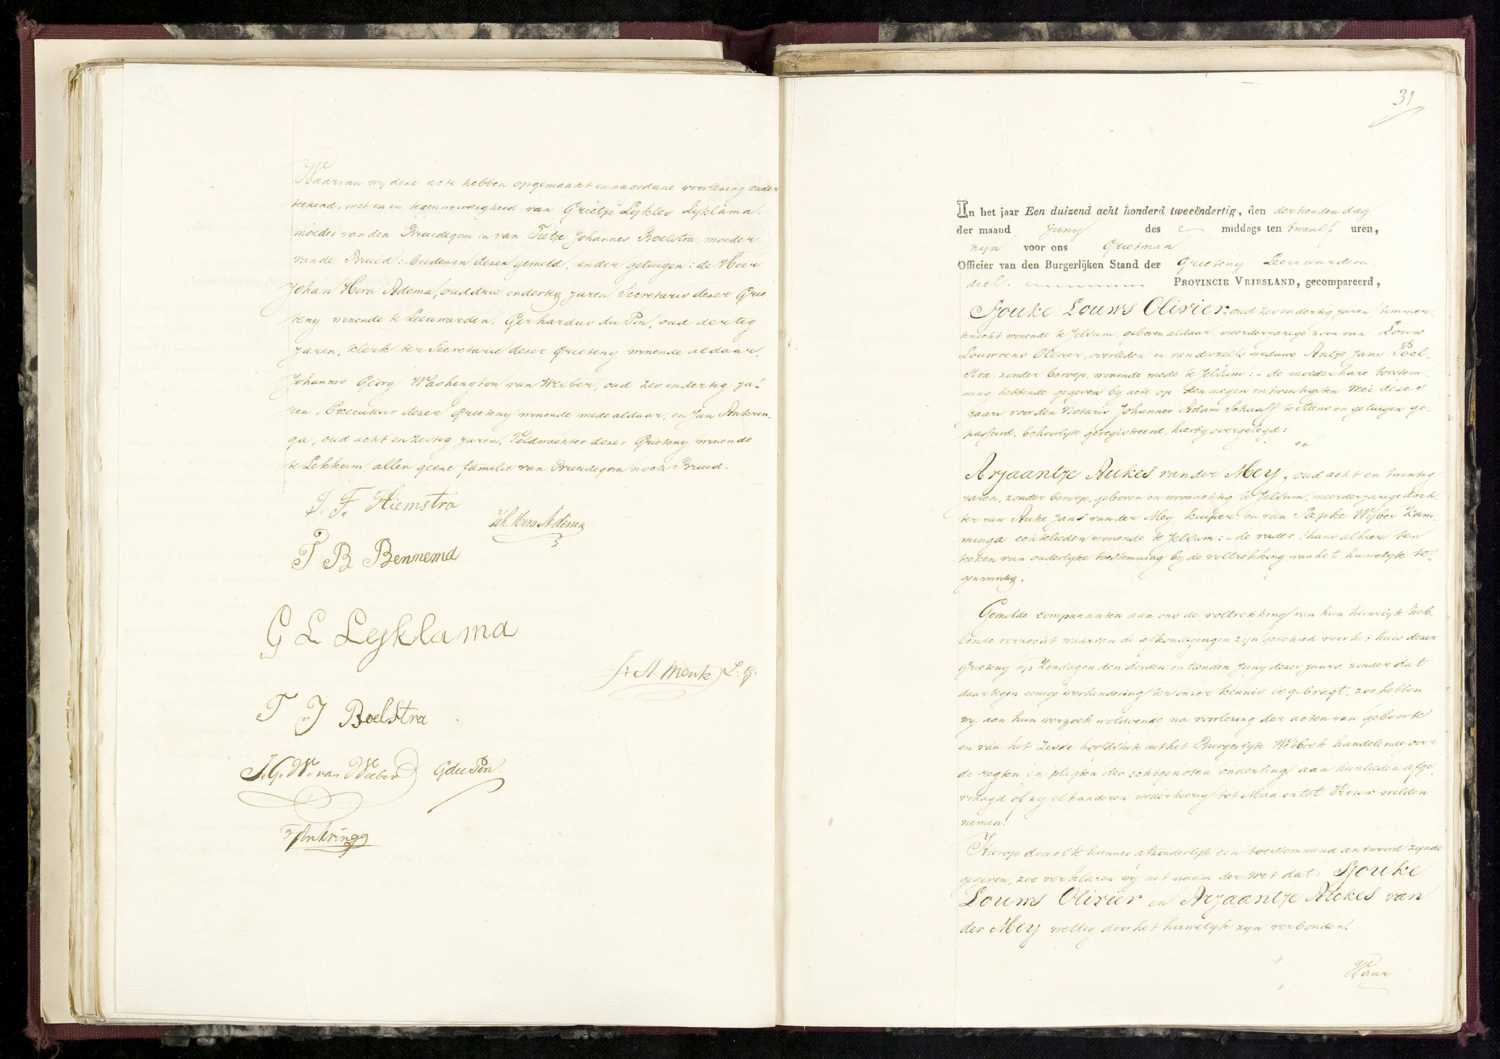 Waarvan wy deze acte hebben opgemaakt en na gedane voorlezing onder
teekend, met en in tegenwoordigheid van Grietje Lykles Lyklama.
moeder van den Bruidegom en van Tietje Johannes Boelstra, moeder
van de Bruid: beiden in dezen gemeld, en der getuigen: de Heer
Johan Hora Adema, oud drie en dertig jaren Secretaris dezer Grie
teny wonende te Leeuwarden. Gerhardus du Pon, oud dertig
jaren, klerk ter Secretarie dezer Grieteny wonende aldaar,
Johannes Georg Washington van Weeber, oud zes en dertig ja-
ren, Executeur dezer Grieteny wonende mede aldaar, en Jan Ankrin
ga, oud acht en zestig jaren, Veldwachter dezer Grieteny wonende
te Lekkum, allen geene familie van Bruidegom noch Bruid.
J. F. Hiemstra
Joh. Hora Adema
T B Bennema
G L Lijklama
T J Boelstra
J. G. W. van Weeber
G du Pon
J Ankringa
31
In het jaar Een duizend acht honderd tweeëndertig, den derkenden dag
der maand Juny des middags ten twaalf uren,
zyn voor ons Grietman
Officier van den Burgerlijken Stand der Grieteny Leeuwardera
deel. PROVINCIE VRIESLAND, gecompareerd,
Sjouke Louws Olivier, oud zes en dertig jaren timmer
knecht wonende te Jelsum, geboren aldaar, meerderjarige zoon van Louw
Louwrens Olivier, overleden en van deszelfs weduwe Antje Jans
zonder beroep, wonende mede te Jelsum: de moeder hare toestem
ming hebbende gegeven by acte op den negen en twintigsten Mei dezes
jaars voor den Notaris Johannes Adam Schaaff te en getuigen ge
passeerd, behoorlyk geregistreerd, hierby overgelegd:
en
Arjaantje Aukes van der Mey, oud acht en twintig
jaren, zonder beroep, geboren en woonachtig te Jelsum, meerderjarige doch
ter van Auke Jans van der Mey kuiper en van Sjepke Wybes Kam
minga echtelieden wonende te Jelsum: de vader thans alhier ten
teeken van ouderlyke toestemming by de voltrekking van het huwelyk te
genwoordig.
Gemelde comparanten aan ons de voltrekking van hun huwelyk heb
bende verzocht waarvan de afkondigingen zyn geschied voor het huis dezer
Grieteny op Zondagen den derden en tienden Juny dezes jaars zonder dat
daartegen eenige verhindering ter onzer kennis is gebragt; zoo hebben
wy aan hun verzoek voldoende na voorlezing der acten van geboorte
en van het zesde hoofdstuk uit het Burgerlyk Wetboek handelende over
de regten en pligten der echtgenooten onderling aan hunlieden afge
vraagd of zy elkanderen wederkeerig tot Man en tot Vrouw wilden
nemen!
Hierop door elk hunner afzonderlyk een toestemmend antwoord zynde
gegeven, zoo verklaren wy uit naam der wet dat: Sjouke
Louws Olivier en Arjaantje Aukes van
der Mey wettig door het huwelyk zyn verbonden!
Waar